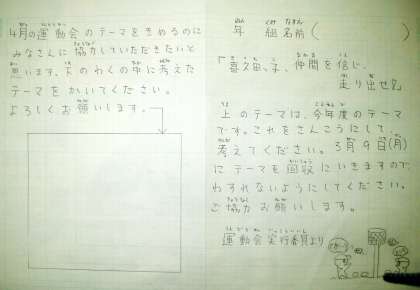 4月の運動会のテーマをきめるのに
みなさんに協力していただきたいと
思います。下のわくの中に考えた
テーマをかいてください。
よろしくお願いします。
年 組 名前( )
仲間を信じ、
走り出せ
上のテーマは、今年度のテーマ
です。これをさんこうにして、
考えてください。3月9日(月)
にテーマを回収にいきますので
わすれないようにしてください。
ご協力お願いします。
運動会実行委員より